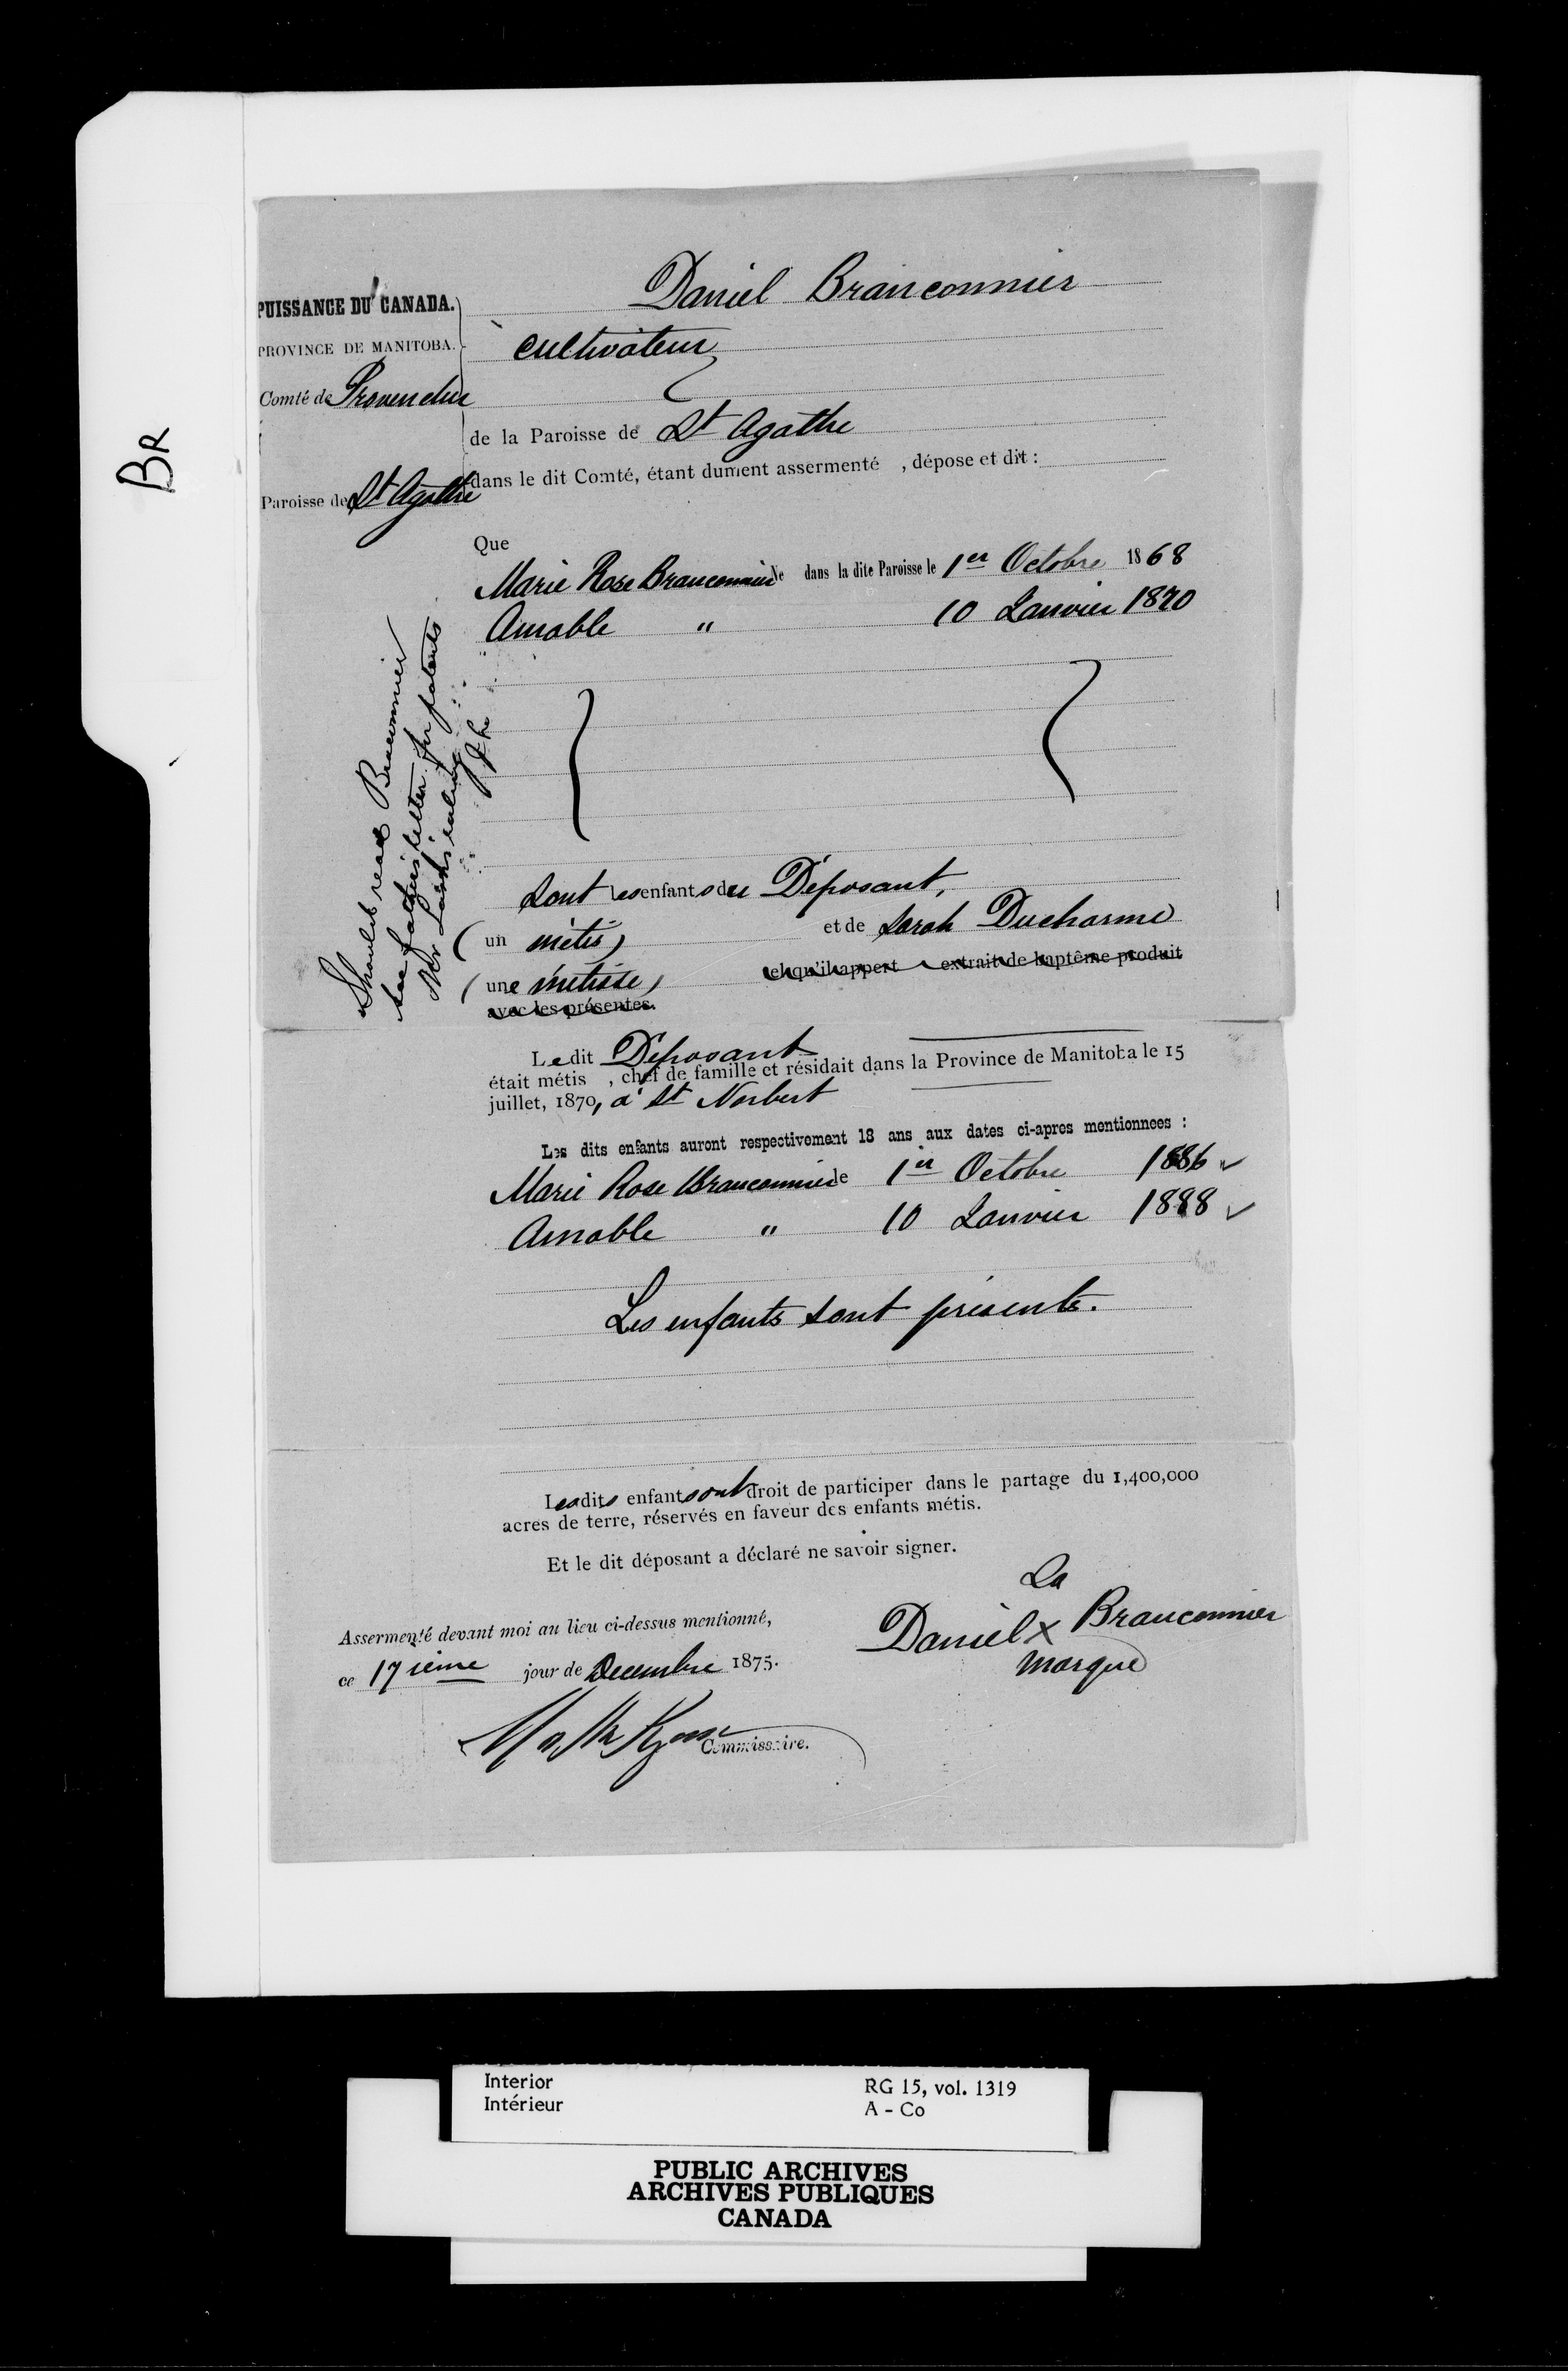 BR
PUISSANCE DU CANADA.
PROVINCE DE MANITOBA.
Comté de Provencher
Paroisse de St Agathe
Daniel Branconnier
cultivateur
de la Paroisse de St Agathe
dans le dit Comté, étant dument assermenté , dépose et dit :
Que
Marie Rose Branconnier Ne dans la dite Paroisse le 1er Octobre 1868
Amable " 10 Janvier 1870
Should read Braconnier
see father's letter for patents
Mr ruling
Sont les enfants du Déposant,
(un métis) et de Sarah Ducharme
(une métisse) tel qu'il appert extrait de baptême produit
avec les présentes.
Le dit Déposant
était métis , chef de famille et résidait dans la Province de Manitoba le 15
juillet, 1870, à St Norbert
Les dits enfants auront respectivement 18 ans aux dates ci-apres mentionnees :
Marie Rose Branconnier le 1er Octobre 1886
Amable " 10 Janvier 1888
Les enfants sont présents.
Les dits enfants ont droit de participer dans le partage du 1,400,000
acres de terre, réservés en faveur des enfants métis.
Et le dit déposant a déclaré ne savoir signer.
Sa
Daniel x Branconnier
marque
Assermenté devant moi au lieu ci-dessus mentionné,
ce 17ième jour de Decembre 1875.
Commissaire.
Interior
Intérieur
RG 15, vol. 1319
A - Co
PUBLIC ARCHIVES
ARCHIVES PUBLIQUES
CANADA